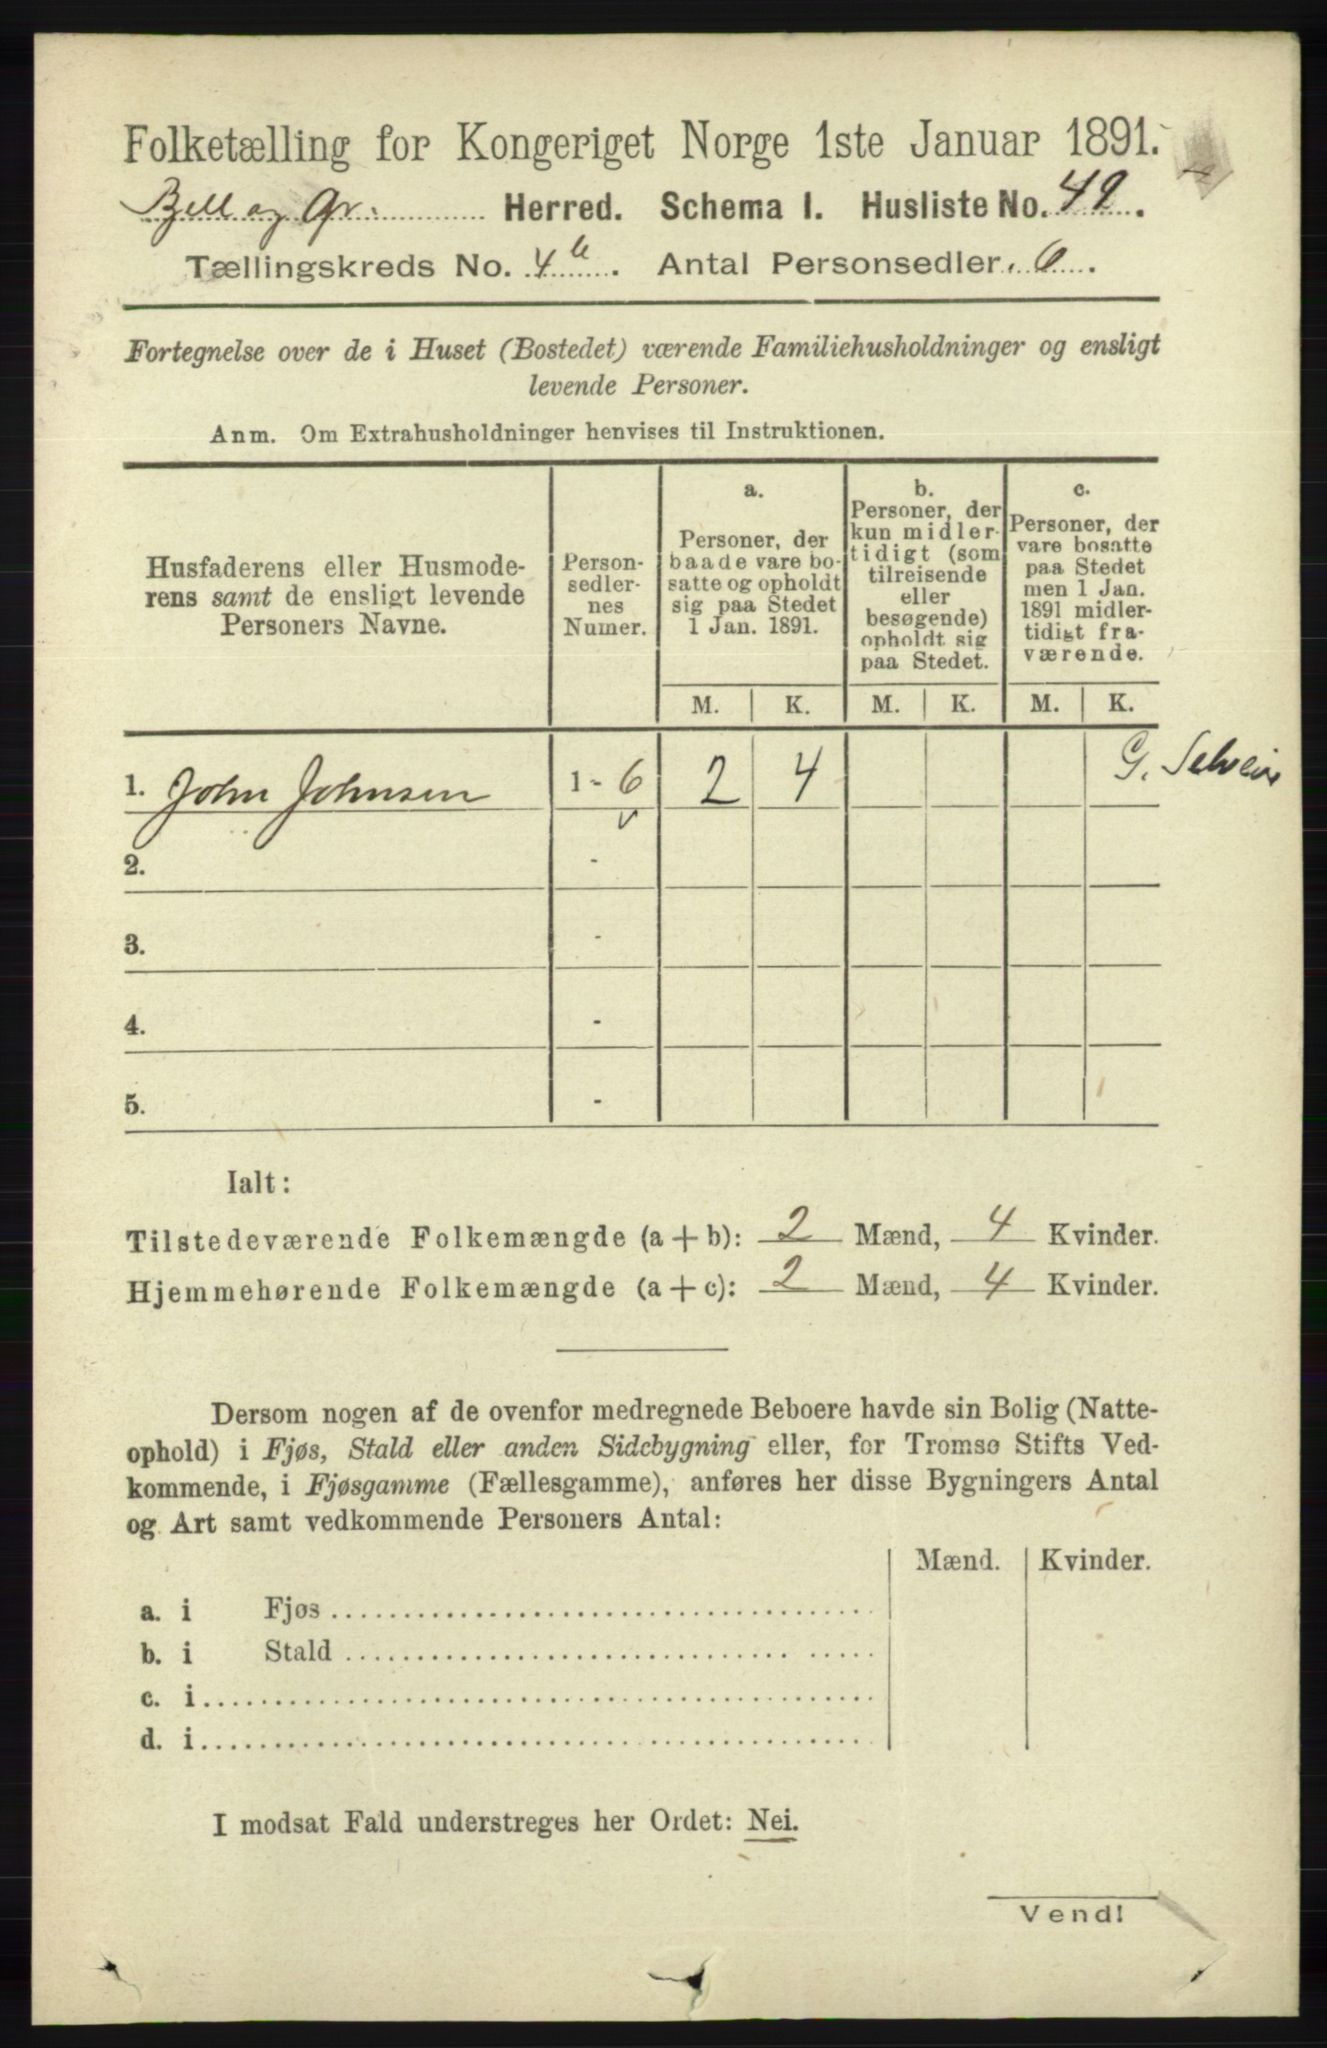 Folketælling for Kongeriget Norge 1ste Januar 1891.
Bell og Gr. Herred. Schema I. Husliste No. 42.
Tællingskreds No. 4b. Antal Personsedler. 6.
Fortegnelse over de i Huset (Bostedet) værende Familiehusholdninger og ensligt
levende Personer.
Anm. Om Extrahusholdninger henvises til Instruktionen.
Husfaderens eller Husmode-
rens samt de ensligt levende
Personers Navne.
Person-
sedler-
nes
Numer.
a.
Personer, der
baade vare bo-
satte og opholdt
sig paa Stedet
1 Jan. 1891.
b.
Personer, der
kun midler-
tidigt (som
tilreisende
eller
besøgende)
opholdt sig
paa Stedet.
c.
Personer, der
vare bosatte
paa Stedet
men 1 Jan.
1891 midler-
tidigt fra-
værende.
M. K. M. K. M. K.
1. John Johnsen 1 - 6 2 4 G. Selveier
2. -
3. -
4. -
5. -
Ialt:
Tilstedeværende Folkemængde (a + b): 2 Mænd, 4 Kvinder.
Hjemmehørende Folkemængde (a + c): 2 Mænd, 4 Kvinder.
Dersom nogen af de ovenfor medregnede Beboere havde sin Bolig (Natte-
ophold) i Fjøs, Stald eller anden Sidebygning eller, for Tromsø Stifts Ved-
kommende, i Fjøsgamme (Fællesgamme), anføres her disse Bygningers Antal
og Art samt vedkommende Personers Antal:
Mænd. Kvinder.
a. i Fjøs
b. i Stald
c. i
d. i
I modsat Fald understreges her Ordet: Nei.
Vend!